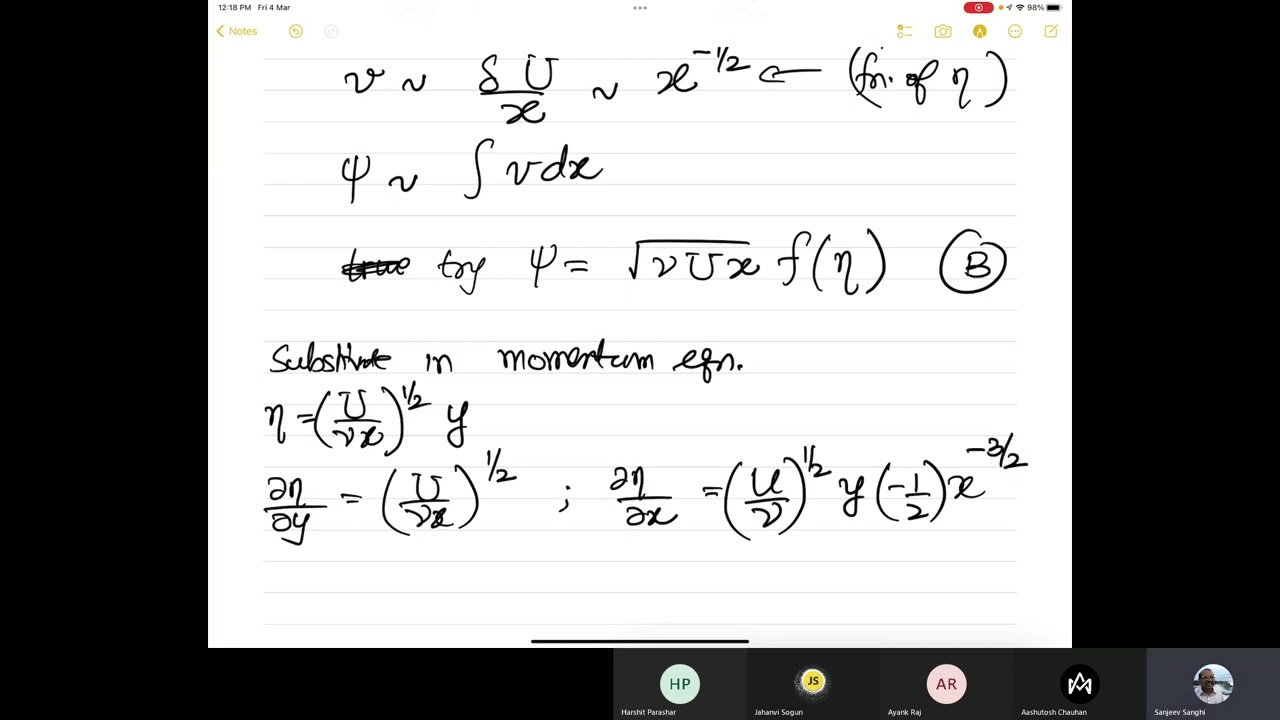 12:18 PM Fri 4 Mar
98%
Notes
v ~ δU/x ~ x^{-1/2} ← (fn. of η)
ψ ~ ∫ v dx
try ψ = √(νUx) f(η) (B)
Substitute in momentum eqn.
η = (U/νx)^{1/2} y
∂η/∂y = (U/νx)^{1/2} ; ∂η/∂x = (U/ν)^{1/2} y (-1/2) x^{-3/2}
HP
JS
AR
Harshit Parashar
Jahanvi Sogun
Ayank Raj
Aashutosh Chauhan
Sanjeev Sanghi